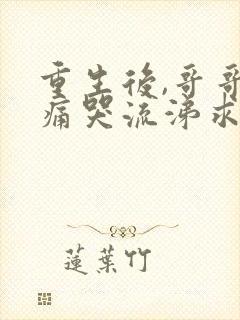 重生後,哥哥
痛哭流涕求
蓮葉竹